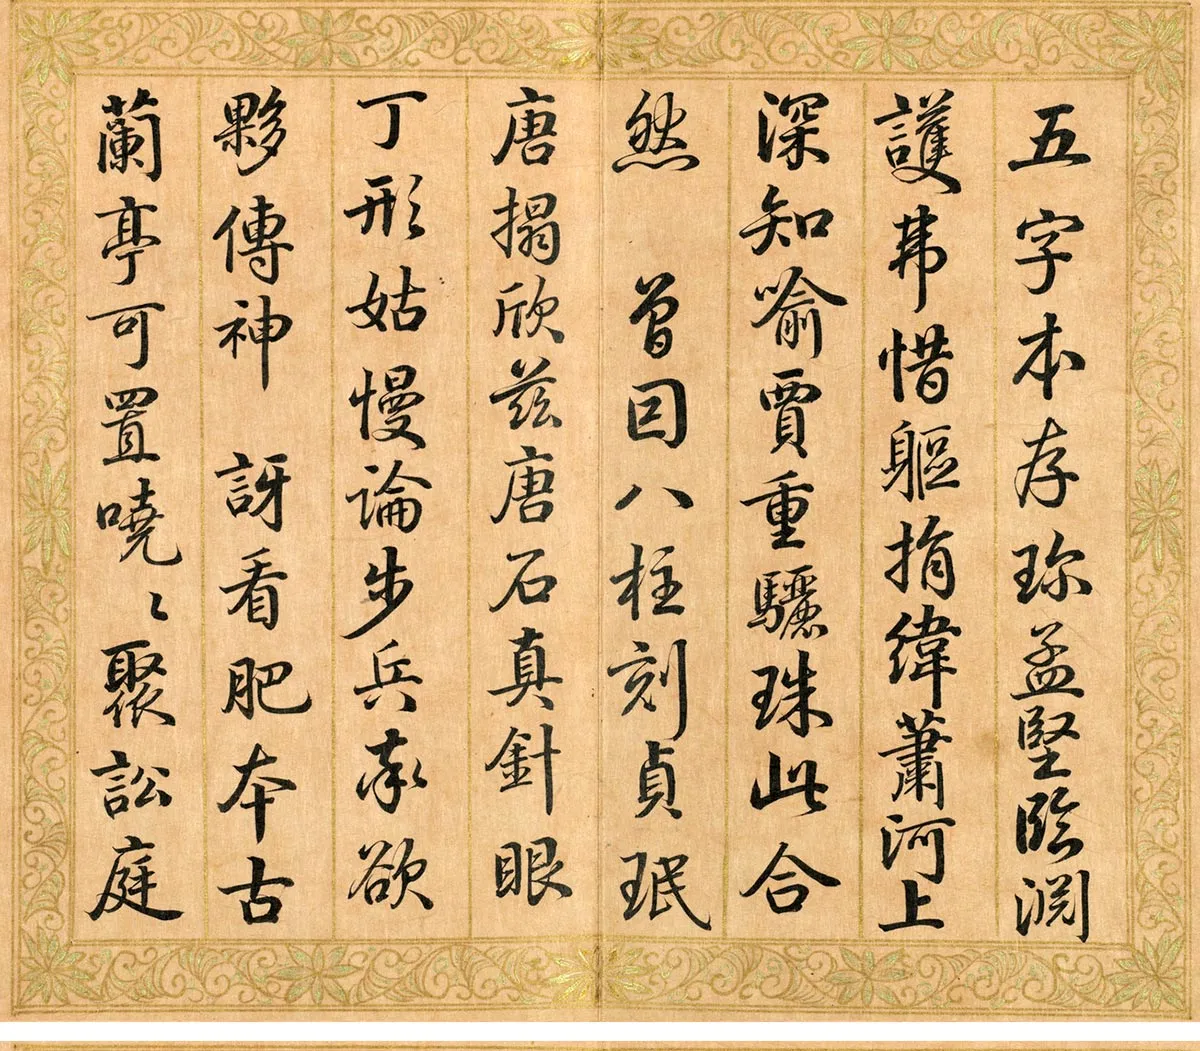 五字本存珎孟堅臨淵
護弗惜軀捐緯蕭河上
深知喻賈重驪珠此合
然 曾因八柱刻貞珉
唐搨欣茲唐石真針眼
丁形姑慢論步兵奉欲
夥傳神 訝看肥本古
蘭亭可置嘵〻聚訟庭